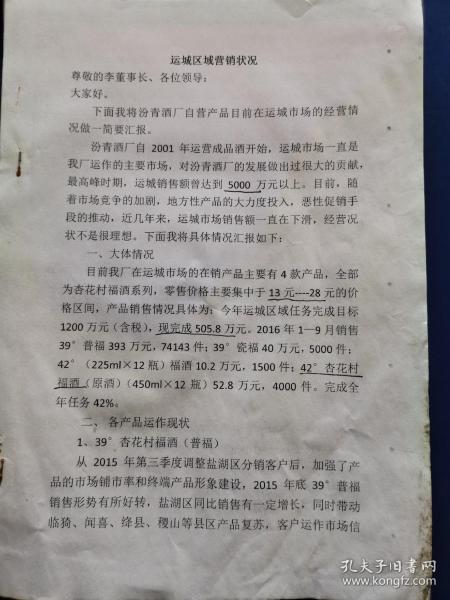 运城区域营销状况
尊敬的李董事长、各位领导：
大家好。
下面我将汾青酒厂自营产品目前在运城市场的经营情
况做一简要汇报。
汾青酒厂自 2001 年运营成品酒开始，运城市场一直是
我厂运作的主要市场，对汾青酒厂的发展做出过很大的贡献，
最高峰时期，运城销售额曾达到 5000 万元以上。目前，随
着市场竞争的加剧，地方性产品的大力度投入，恶性促销手
段的推动，近几年来，运城市场销售额一直在下滑，经营况
状不是很理想。下面我将具体情况汇报如下：
一、大体情况
目前我厂在运城市场的在销产品主要有 4 款产品，全部
为杏花村福酒系列，零售价格主要集中于 13 元----28 元的价
格区间，产品销售情况具体为：今年运城区域任务完成目标
1200 万元（含税），现完成 505.8 万元。2016 年 1－9 月销售
39°普福 393 万元，74143 件；39°瓷福 40 万元，5000 件；
42°（225ml×12 瓶）福酒 10.2 万元，1500 件；42°杏花村
福酒（原酒）（450ml×12 瓶）52.8 万元，4000 件。完成全
年任务 42%。
二、各产品运作现状
1、39°杏花村福酒（普福）
从 2015 年第三季度调整盐湖区分销客户后，加强了产
品的市场铺市率和终端产品形象建设，2015 年底 39°普福
销售形势有所好转，盐湖区同比销售有一定增长，同时带动
临猗、闻喜、绛县、稷山等县区产品复苏，客户运作市场信
孔夫子旧书网
www.kongfz.com